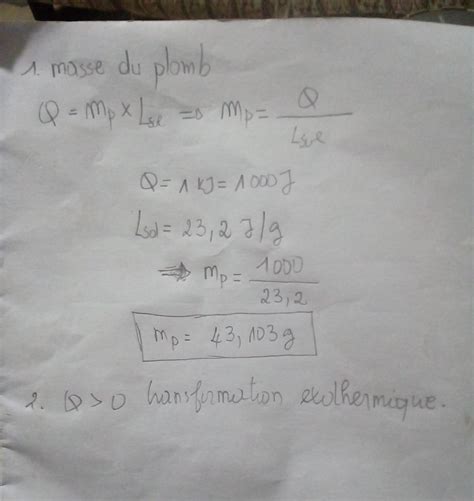 1. masse du plomb
Q = mp × Lsl => mp = Q / Lsl
Q = 1 KJ = 1000 J
Lsl = 23,2 J/g
=> mp = 1000 / 23,2
mp = 43,103 g
2. Q > 0 transformation exothermique.